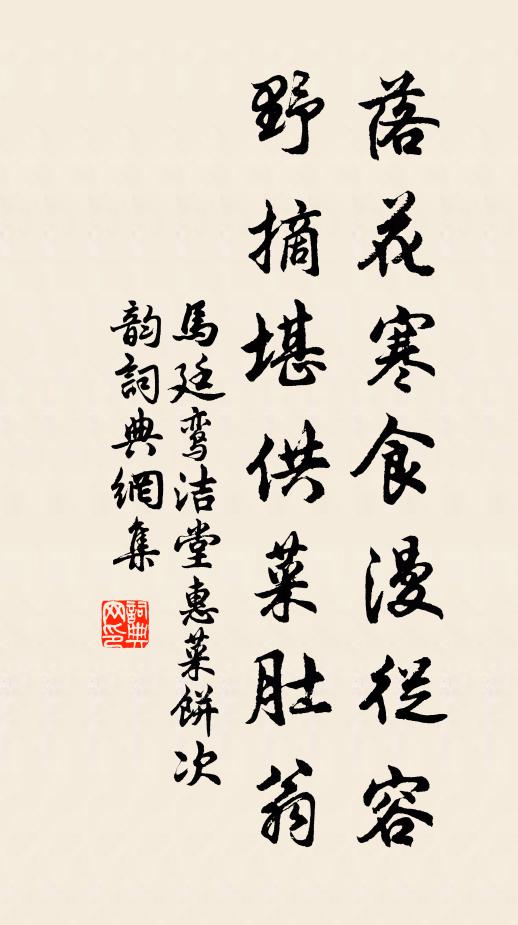 落花寒食漫從容
野摘堪供菜肚翁
馬廷鸾洁堂惠菜餅次
韵詞典網集
詞典
网印